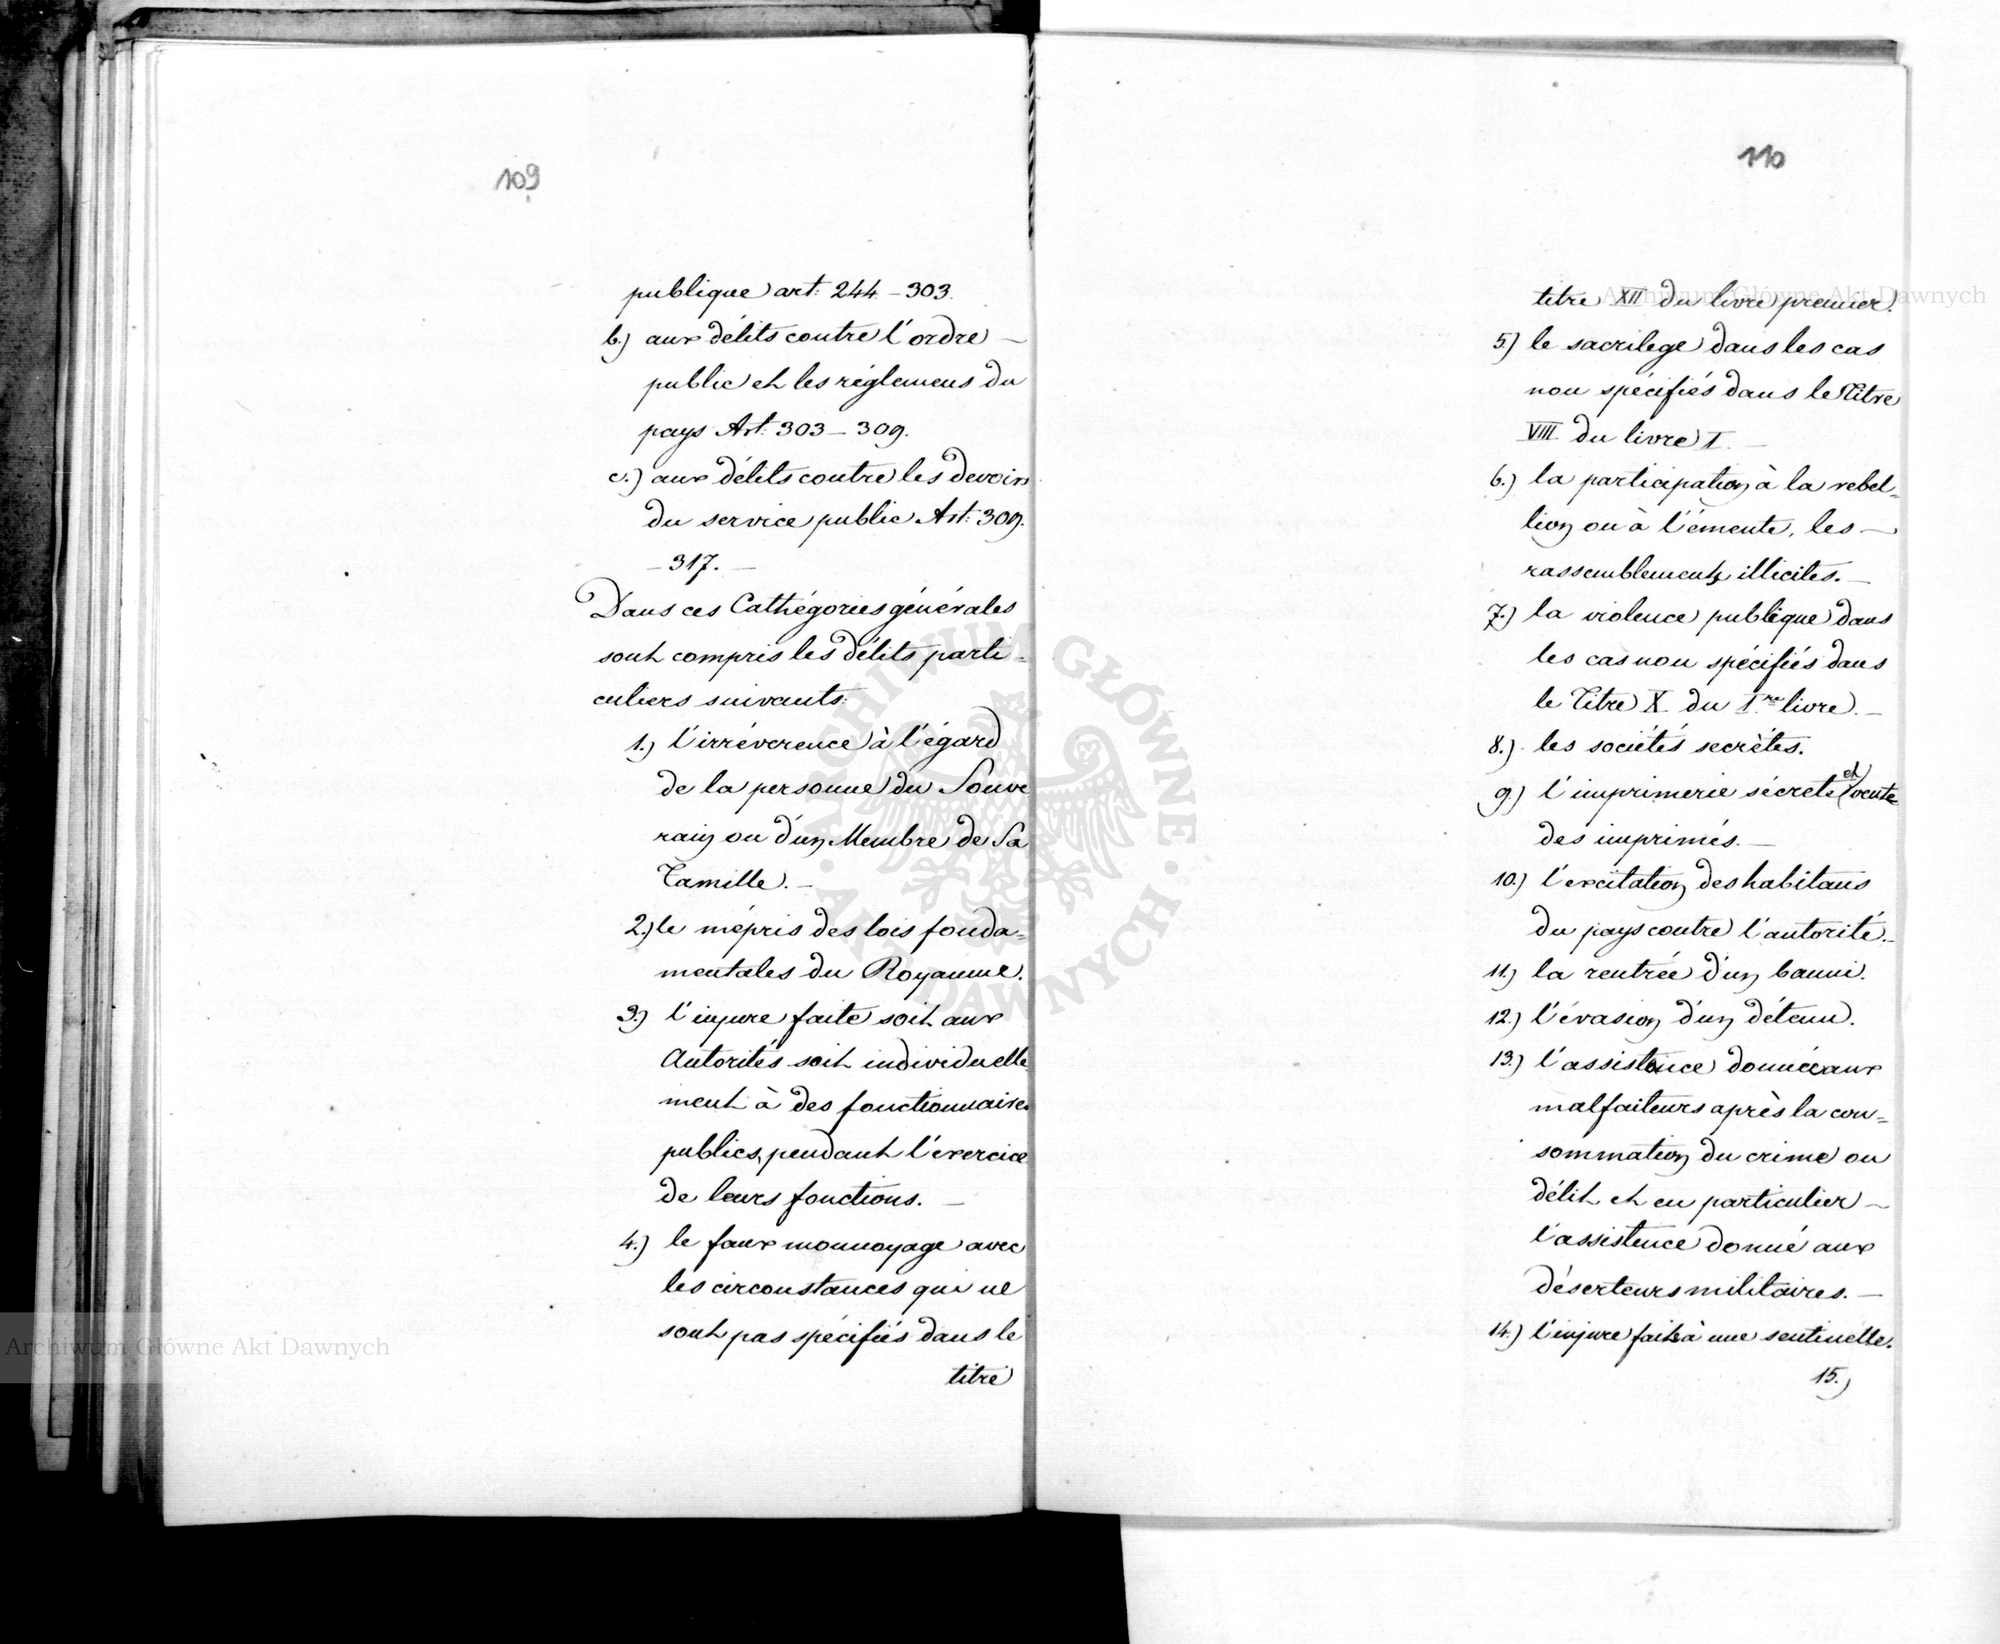 109
publique art: 244 – 303.
b.) aux délits contre l'ordre –
public et les réglemens du
pays Art: 303 – 309.
c.) aux délits contre les devoirs
du service public Art: 309.
– 317. –
Dans ces Cathégories générales
sont compris les délits parti-
culiers suivants:
1.) l'irréverence à l'égard
de la personne du Souve
rain ou d'un Membre de Sa
Famille. –
2.) le mépris des lois fonda=
mentales du Royaume.
3.) l'injure faite soit aux
Autorités soit individuelle
ment à des fonctionnaires
publics, pendant l'exercice
de leurs fonctions. –
4.) le faux monnoyage avec
les circonstances qui ne
sont pas spécifiés dans le
titre
110
titre XII du livre premier.
5.) le sacrilege dans les cas
non spécifiés dans le Titre
VIII. du livre I. –
6.) la participation à la rebel=
lion ou à l'émeute, les –
rassemblements illicites. –
7.) la violence publique dans
les cas non spécifiés dans
le Titre X. du 1.re livre. –
8.) les sociétés secrètes.
9.) l'imprimerie sécrete et vente
des imprimés. –
10.) l'excitation des habitans
du pays contre l'autorité. –
11.) la rentrée d'un banni.
12.) l'évasion d'un détenu.
13.) l'assistance donnée aux
malfaiteurs après la con=
sommation du crime ou
délit et en particulier –
l'assistence donné aux
déserteurs militaires. –
14.) l'injure faite à une sentinelle.
15.)
Archiwum Główne Akt Dawnych
Archiwum Główne Akt Dawnych
ARCHIWUM GŁÓWNE AKT DAWNYCH